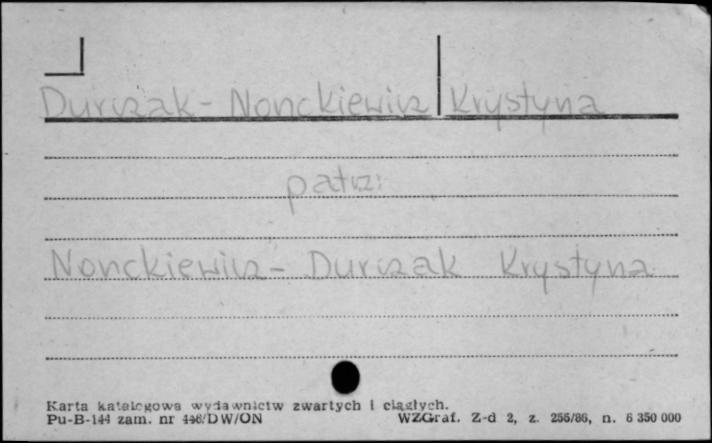 Durczak - Nonckiewicz Krystyna
patrz:
Nonckiewicz - Durczak Krystyna
Karta katalogowa wydawnictw zwartych i ciągłych.
Pu-B-144 zam. nr 446/DW/ON WZGraf. Z-d 2, z. 256/86, n. 6 350 000